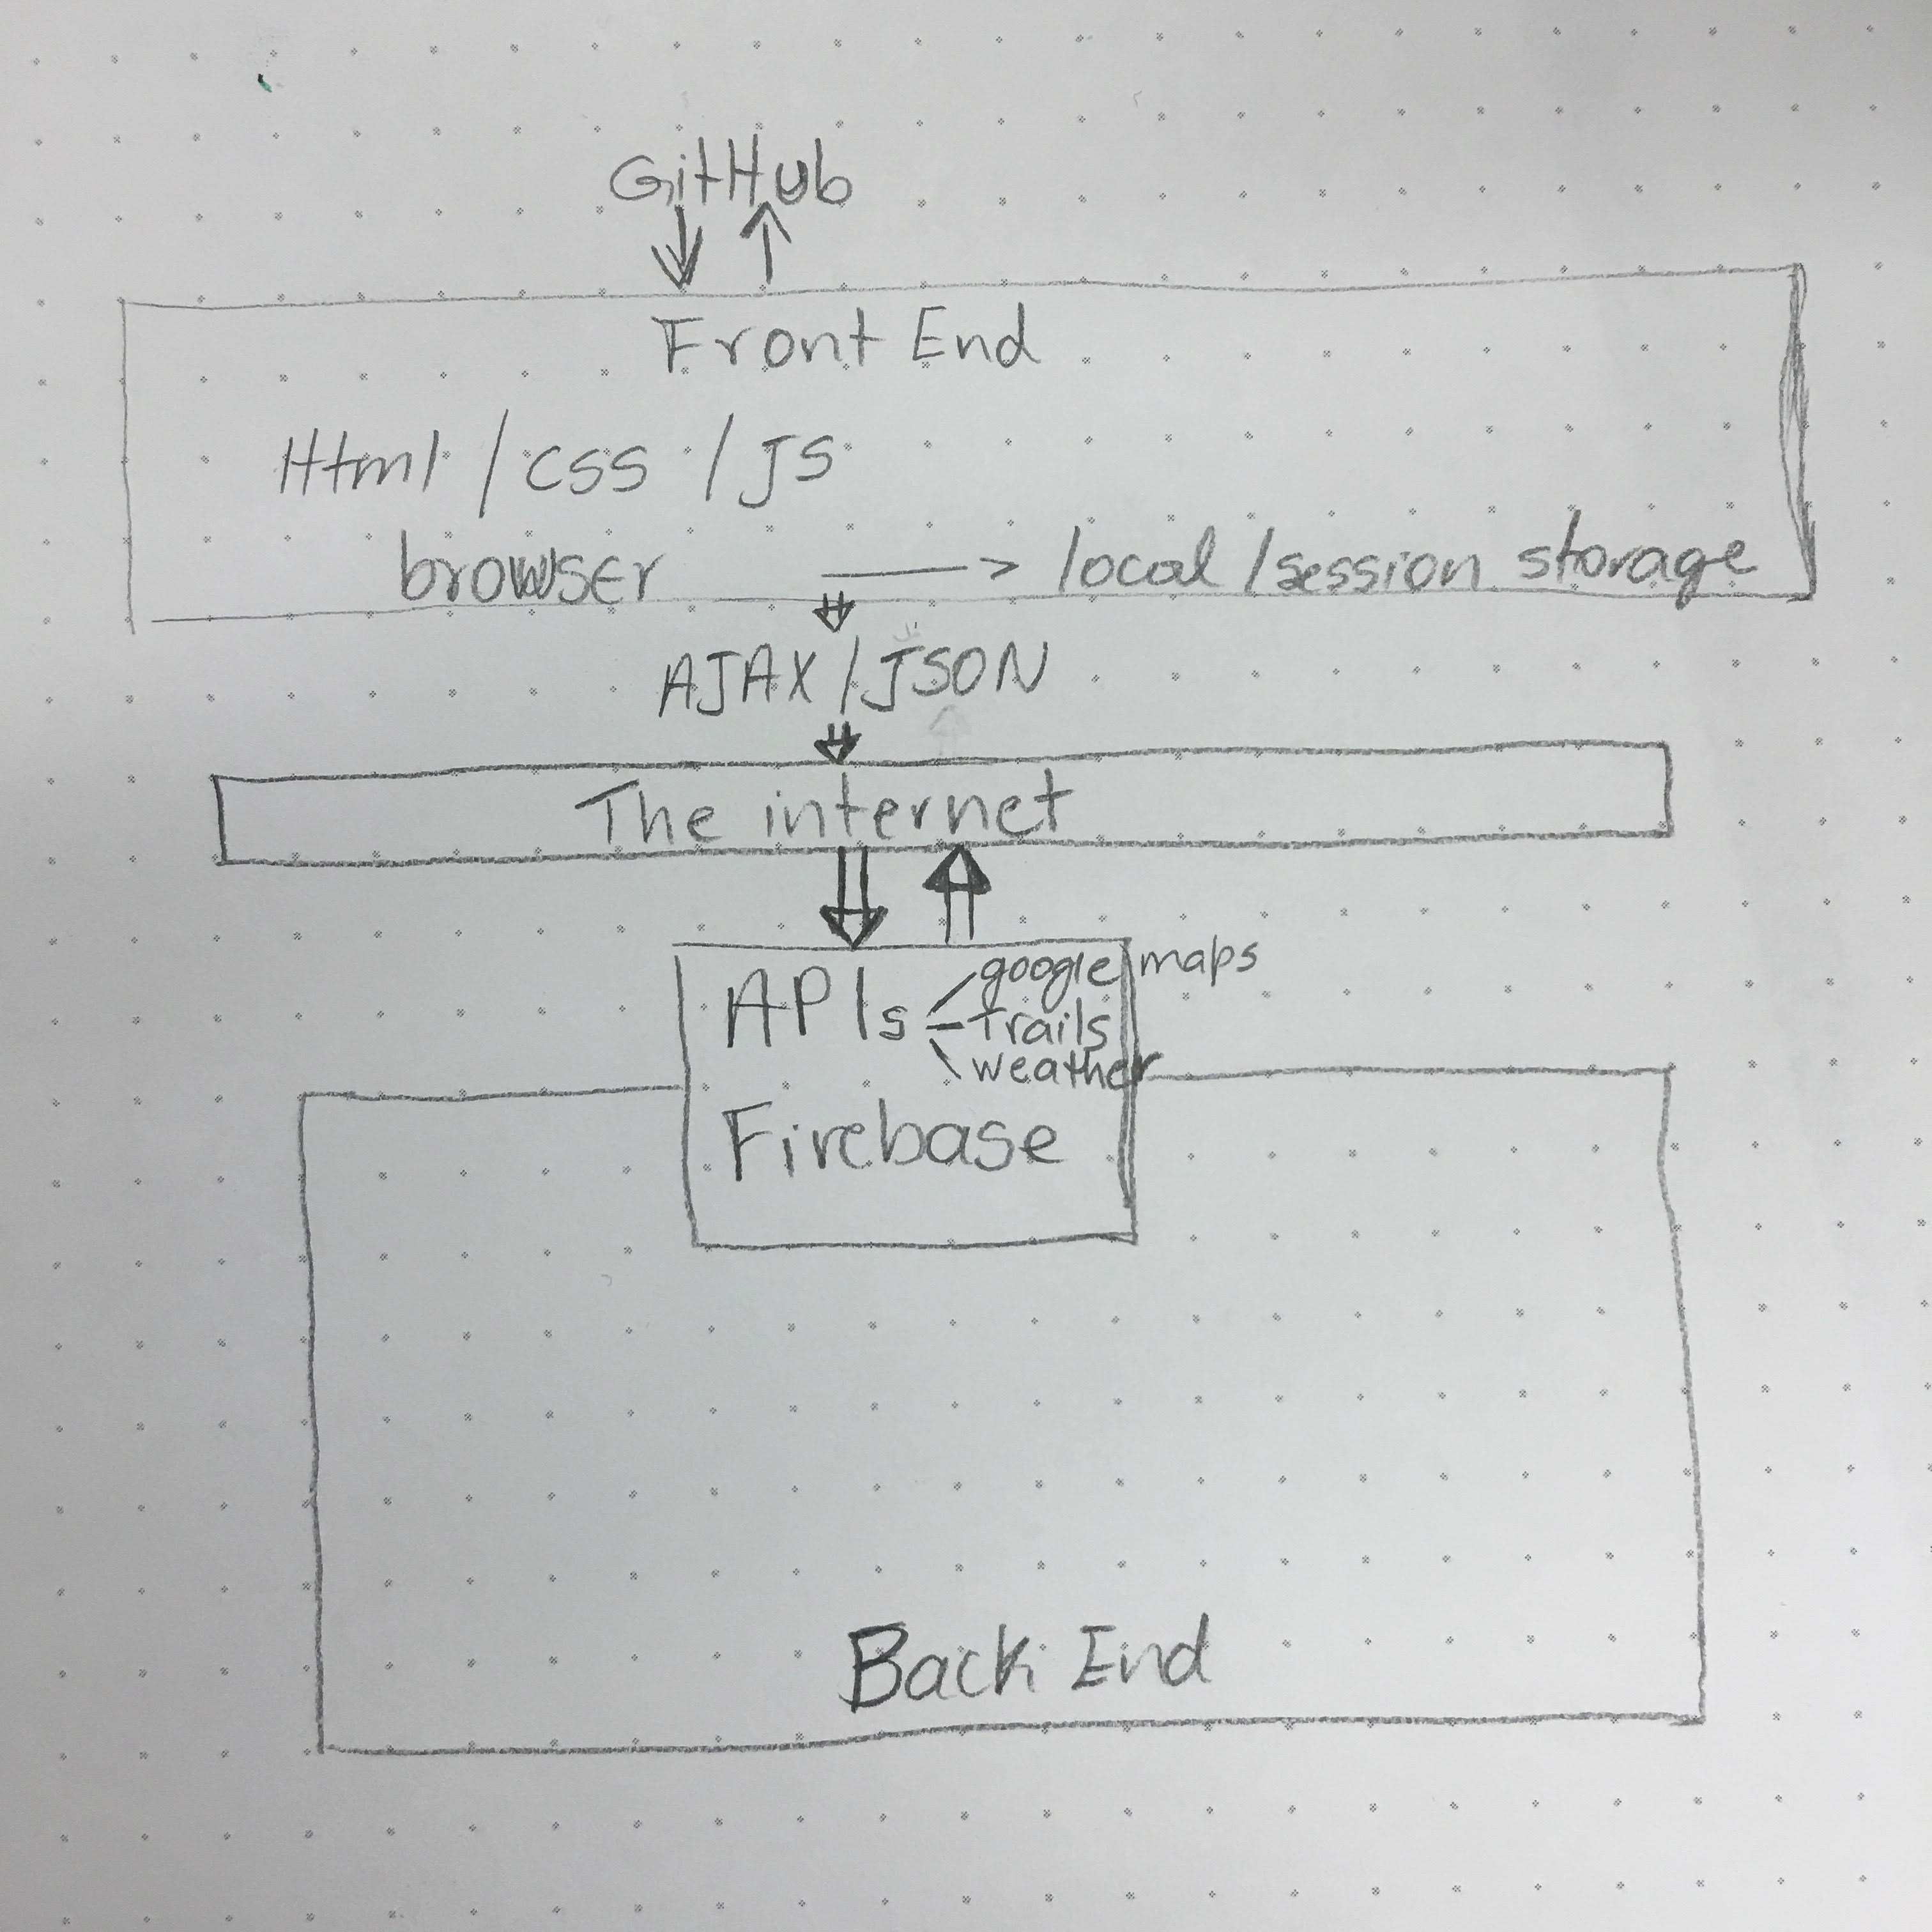 GitHub
Front End
Html / CSS / JS
browser —> local / session storage
AJAX / JSON
The internet
APIs
google maps
trails
weather
Firebase
Back End